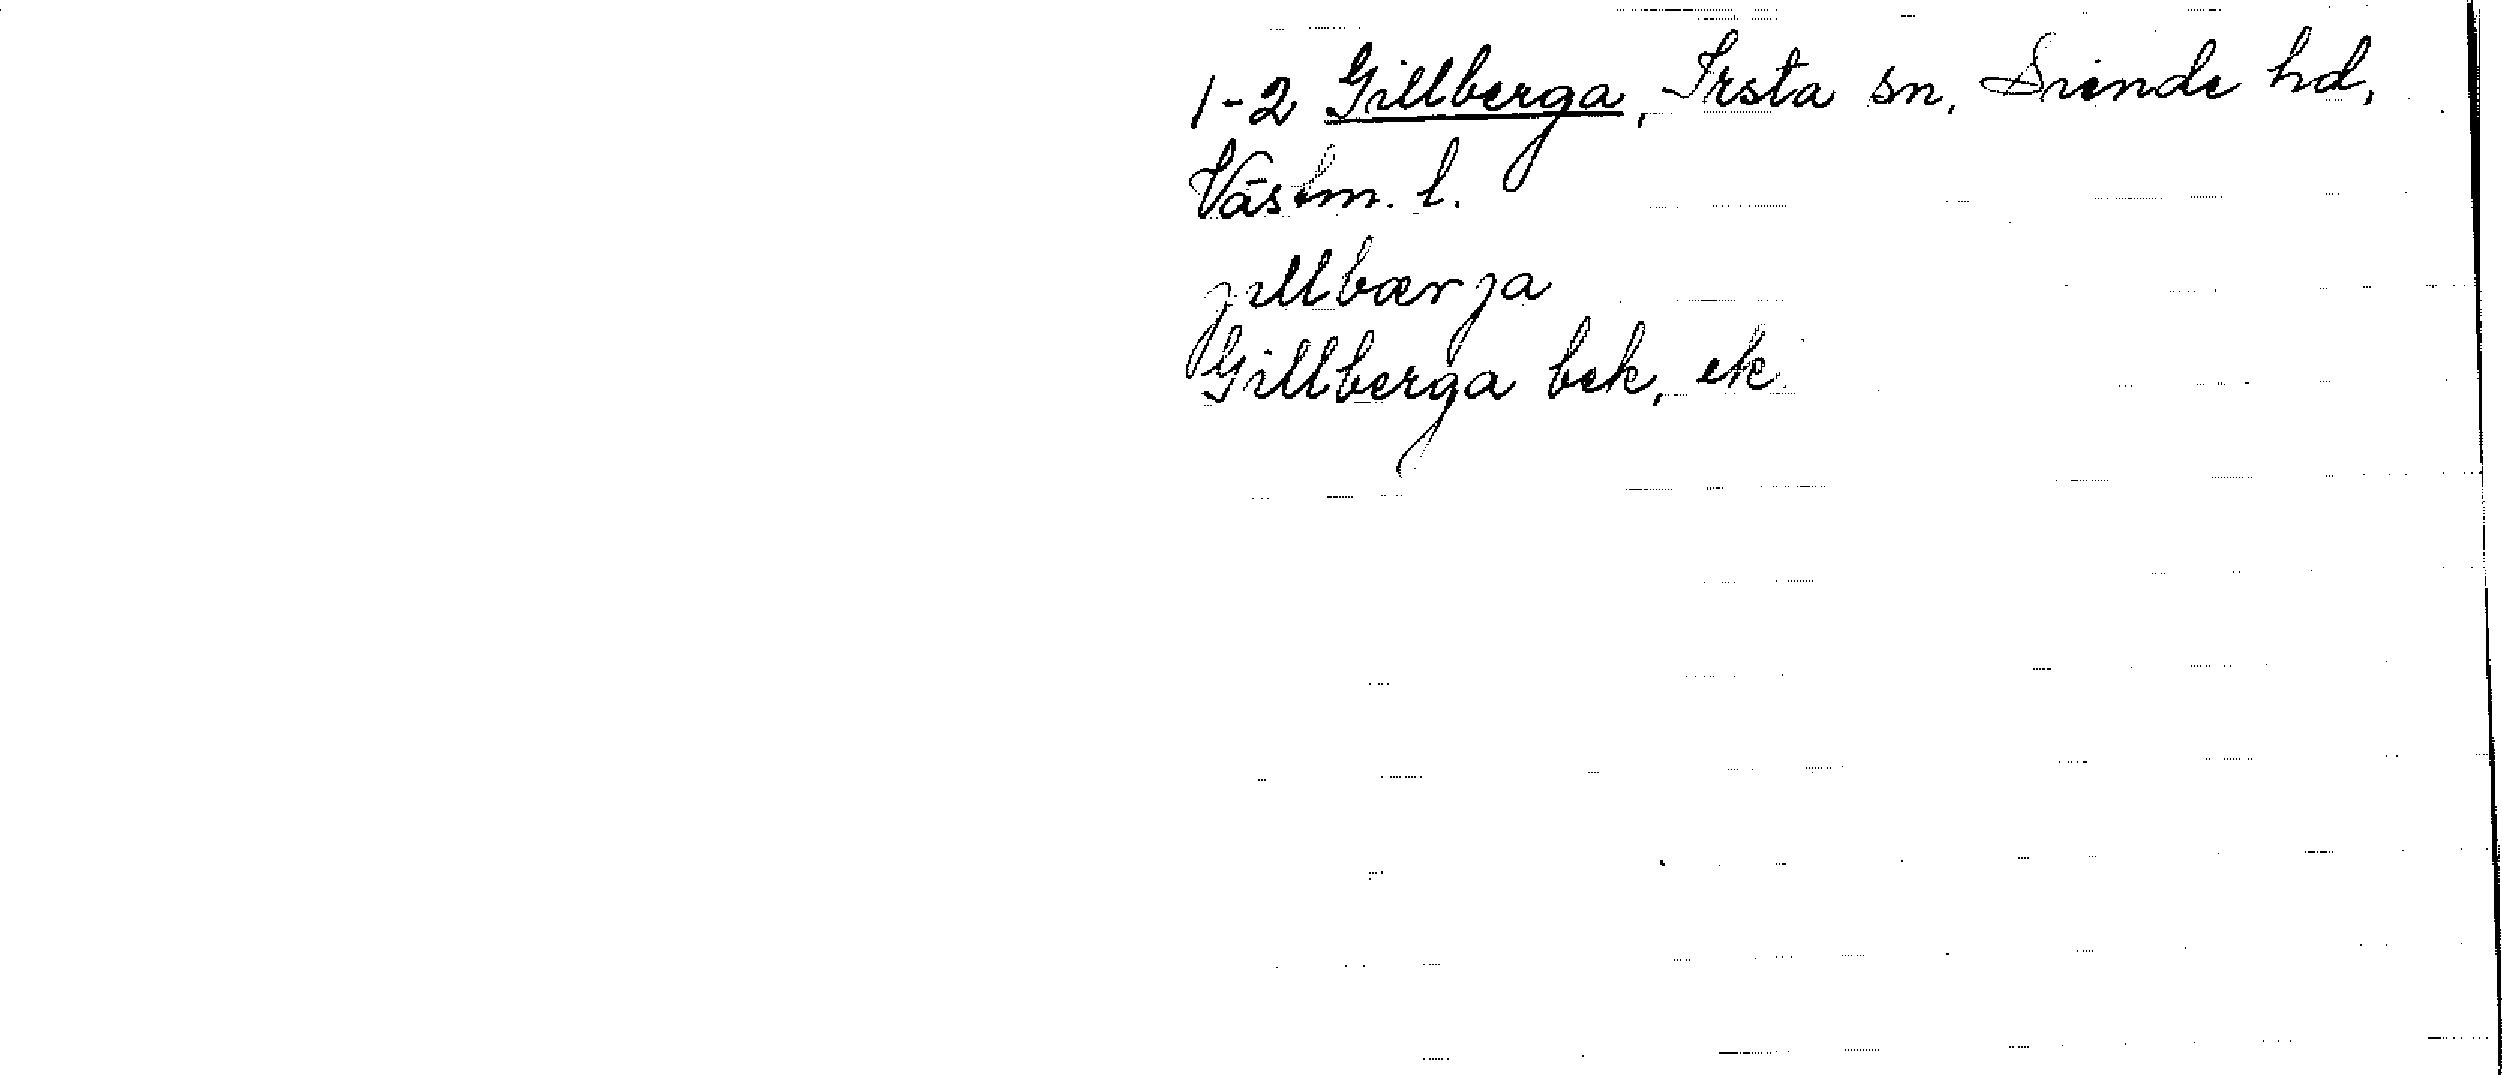 1-2 Gillberga, Irsta sn, Siende hd,
Västm. l.
jillbærja
Gillberga bek, ek